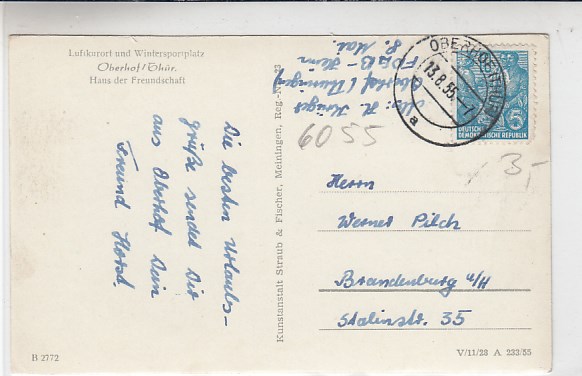 Luftkurort und Wintersportplatz
Oberhof/Thür.
Haus der Freundschaft
Die besten Urlaubs-
grüße sendet Dir
aus Oberhof Dein
Freund Horst.
B 2772
Kunstanstalt Straub & Fischer, Meiningen, Reg-Nr.
Abs: H. Krüger
Oberhof (Thüringen)
FDGB-Heim
8. Mai.
6055
OBERHOF (THÜR)
13.8.55.-7
a
5
DEUTSCHE
DEMOKRATISCHE REPUBLIK
3,-
Herrn
Werner Pilch
Brandenburg a/H
Stalinstr. 35
V/11/28 A 233/55